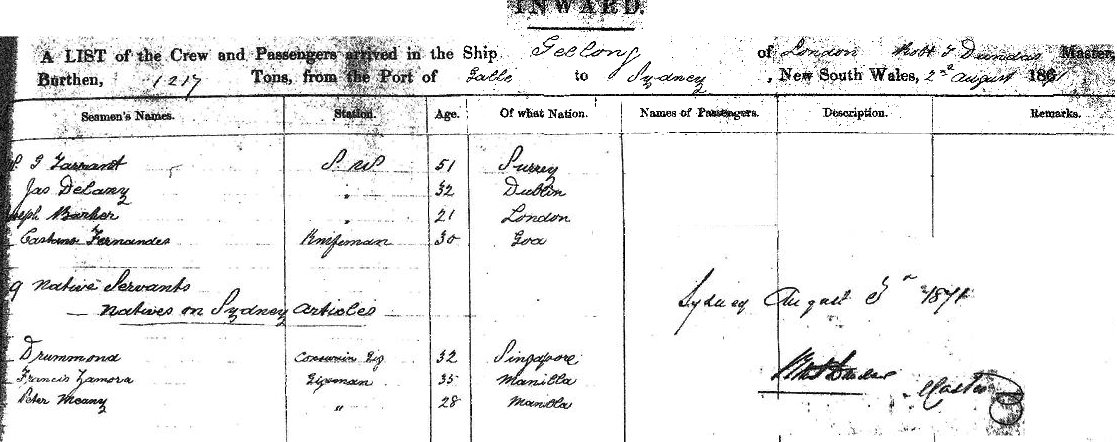 INWARD.
A LIST of the Crew and Passengers arrived in the Ship Geelong of London Robt T Dundas Master,
Burthen, 1217 Tons, from the Port of Galle to Sydney, New South Wales, 2nd August 1871
Seamen's Names. Station. Age. Of what Nation. Names of Passengers. Description. Remarks.
Tarrant 51 Surrey
Jas Delany " 32 Dublin
Joseph Barker " 21 London
Fernandes Knifeman 30 Goa
9 Native Servants
Natives on Sydney Articles
Sydney August 1871
Drummond 32 Singapore
Francis Zamora 35 Manilla
Peter Meany " 28 Manilla
Master